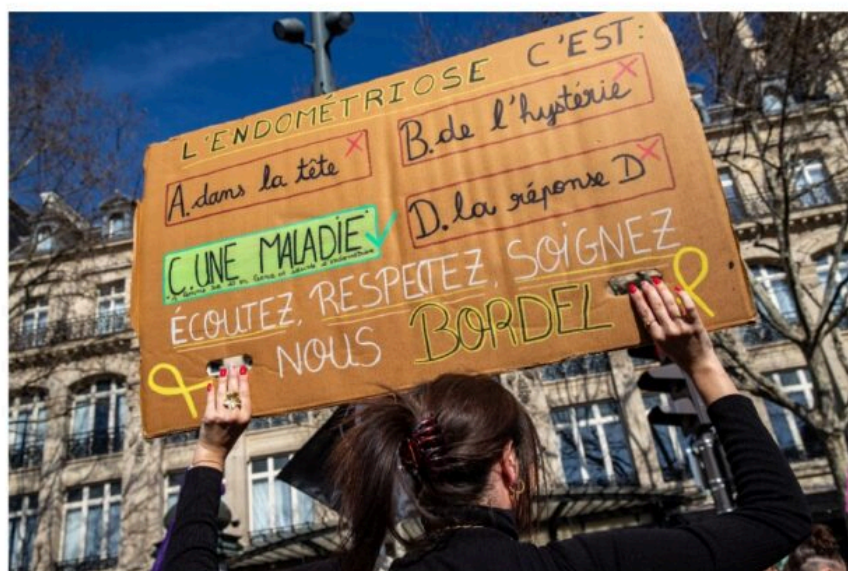 L'ENDOMÉTRIOSE C'EST:
A. dans la tête
B. de l'hystérie
C. UNE MALADIE*
D. la réponse D
ÉCOUTEZ, RESPECTEZ, SOIGNEZ
NOUS BORDEL